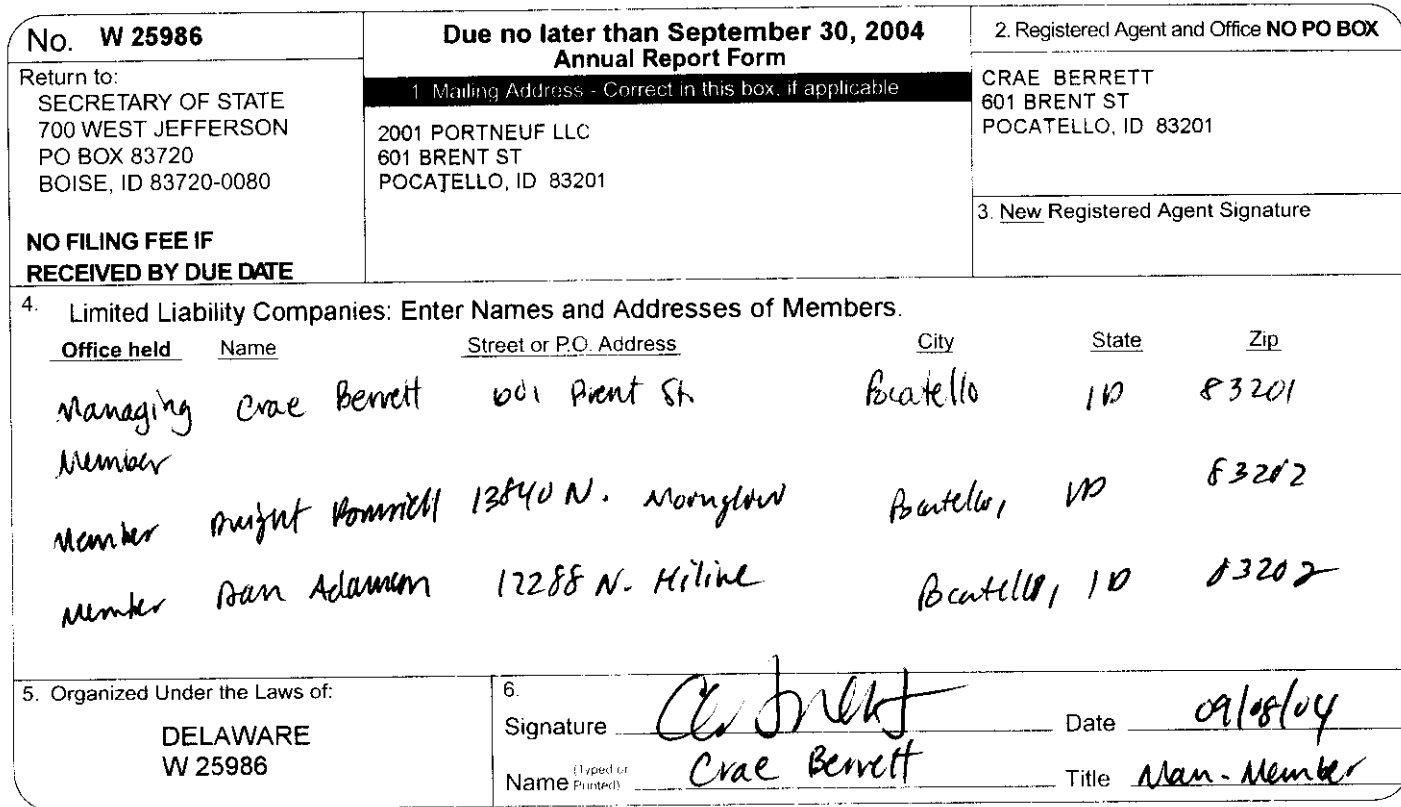 No. W 25986
Return to:
SECRETARY OF STATE
700 WEST JEFFERSON
PO BOX 83720
BOISE, ID 83720-0080
NO FILING FEE IF
RECEIVED BY DUE DATE
Due no later than September 30, 2004
Annual Report Form
1 Mailing Address - Correct in this box, if applicable
2001 PORTNEUF LLC
601 BRENT ST
POCATELLO, ID 83201
2. Registered Agent and Office NO PO BOX
CRAE BERRETT
601 BRENT ST
POCATELLO, ID 83201
3. New Registered Agent Signature
4. Limited Liability Companies: Enter Names and Addresses of Members.
Office held Name Street or P.O. Address City State Zip
Managing Crae Berrett 601 Brent St. Pocatello ID 83201
Member
Member Dwight 13840 N. Pocatello, ID 83202
Member Dan Adamson 12288 N. Hiline Pocatello, ID 83202
5. Organized Under the Laws of:
DELAWARE
W 25986
6.
Signature Date 09/08/04
Name (Typed or Printed) Crae Berrett Title Man-Member